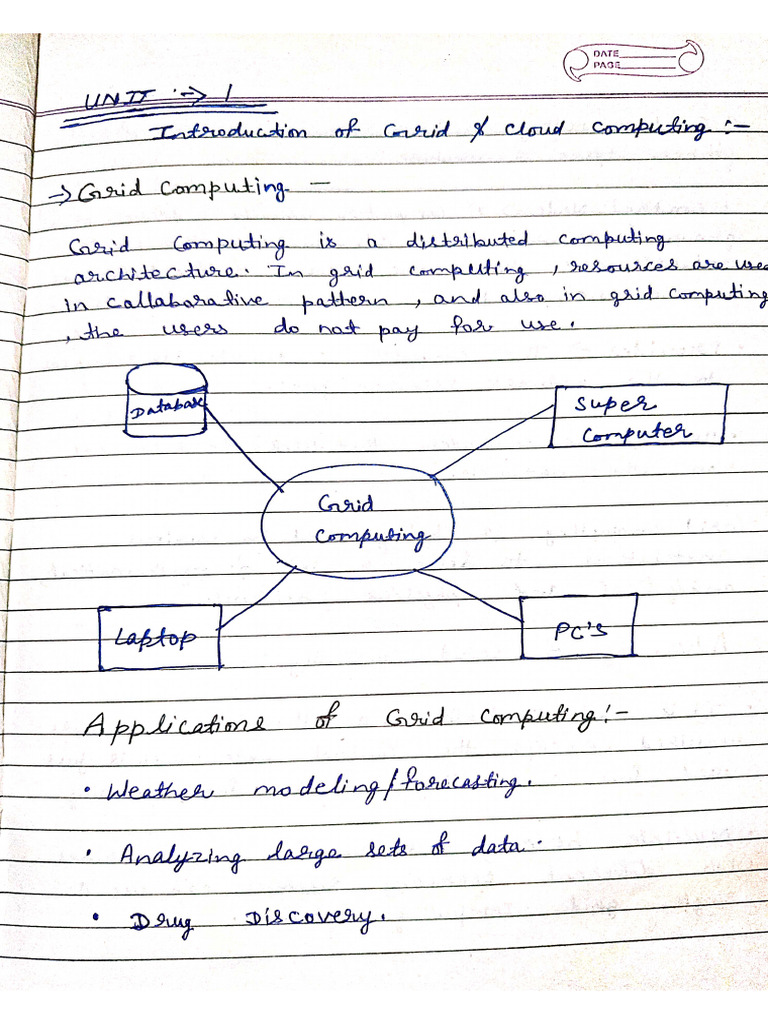 DATE
PAGE
UNIT :→ 1
Introduction of Grid & Cloud Computing :-
→ Grid Computing —
Grid Computing is a distributed computing
architecture. In grid computing, resources are used
in collaborative pattern, and also in grid computing
, the users do not pay for use.
Database
Super
Computer
Grid
Computing
Laptop
PC's
Applications of Grid Computing :-
• Weather modeling/forecasting.
• Analyzing large sets of data.
• Drug Discovery.